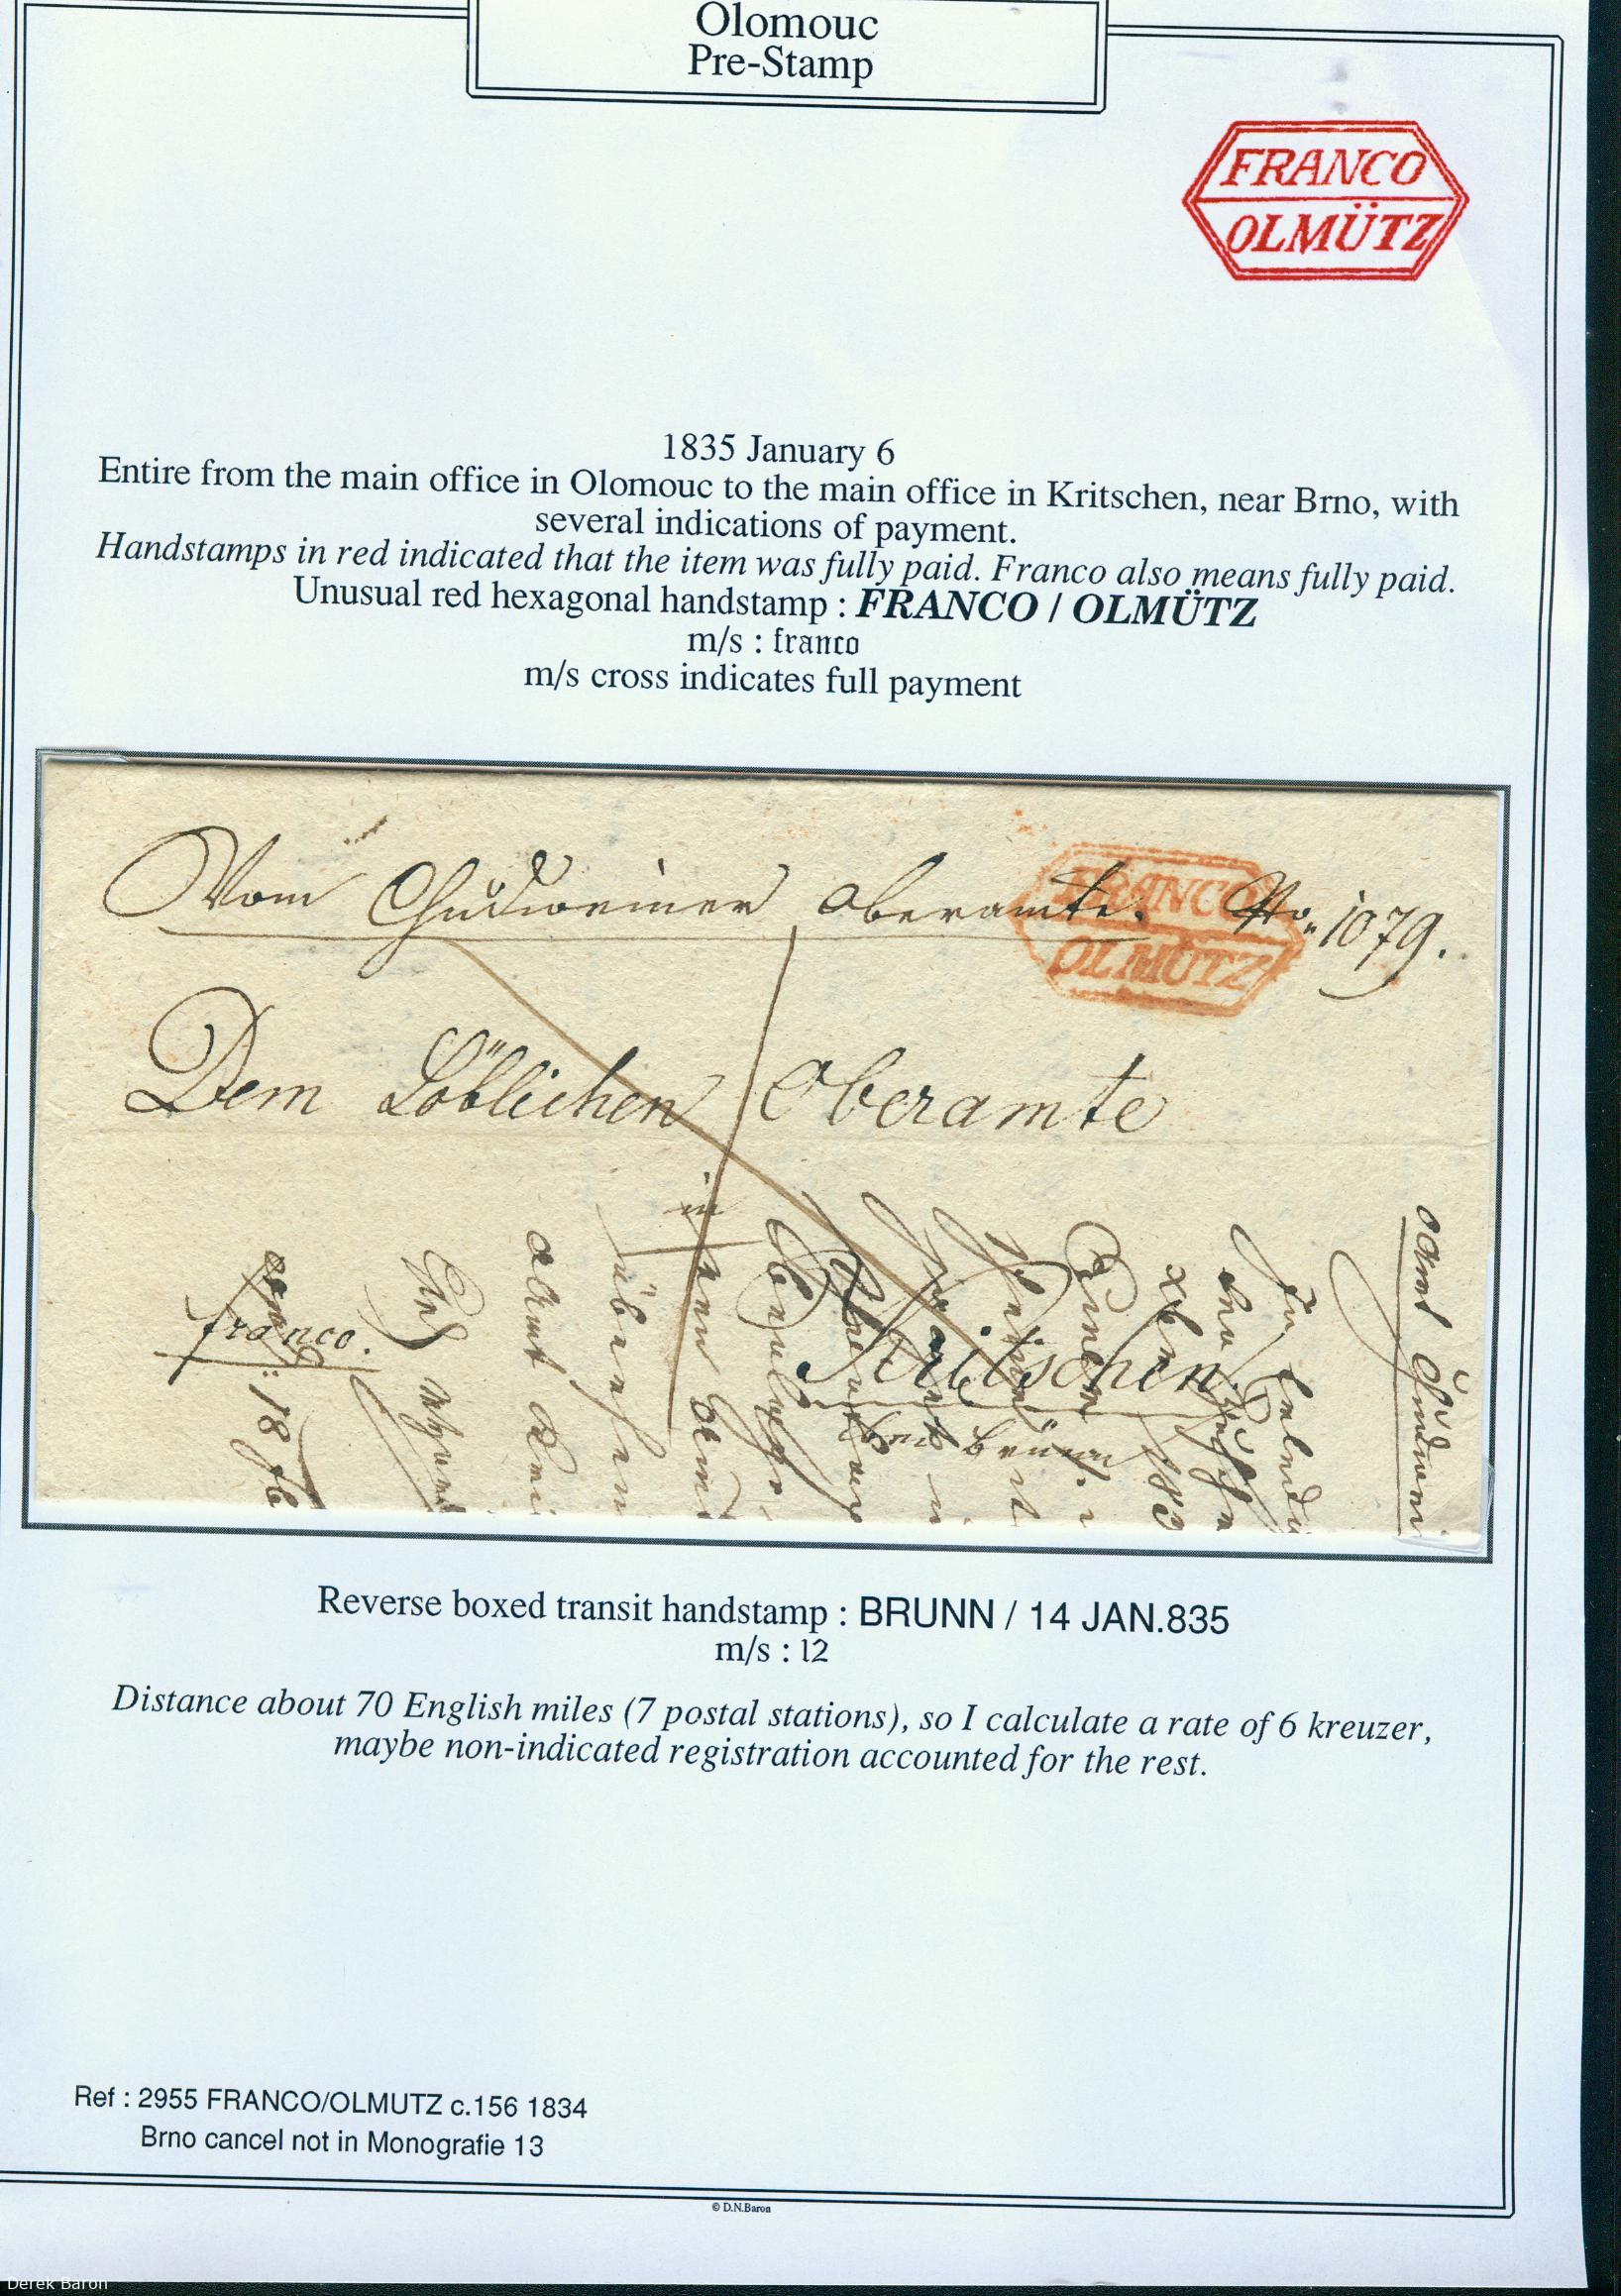 Olomouc
Pre-Stamp
FRANCO
OLMÜTZ
1835 January 6
Entire from the main office in Olomouc to the main office in Kritschen, near Brno, with
several indications of payment.
Handstamps in red indicated that the item was fully paid. Franco also means fully paid.
Unusual red hexagonal handstamp : FRANCO / OLMÜTZ
m/s : franco
m/s cross indicates full payment
Vom Chudweiner Oberamte. No. 1079.
FRANCO
OLMÜTZ
Dem Löblichen Oberamte
in
Kritschen.
bei Brünn
franco.
Reverse boxed transit handstamp : BRUNN / 14 JAN.835
m/s : 12
Distance about 70 English miles (7 postal stations), so I calculate a rate of 6 kreuzer,
maybe non-indicated registration accounted for the rest.
Ref : 2955 FRANCO/OLMUTZ c.156 1834
Brno cancel not in Monografie 13
© D.N.Baron
Derek Baron